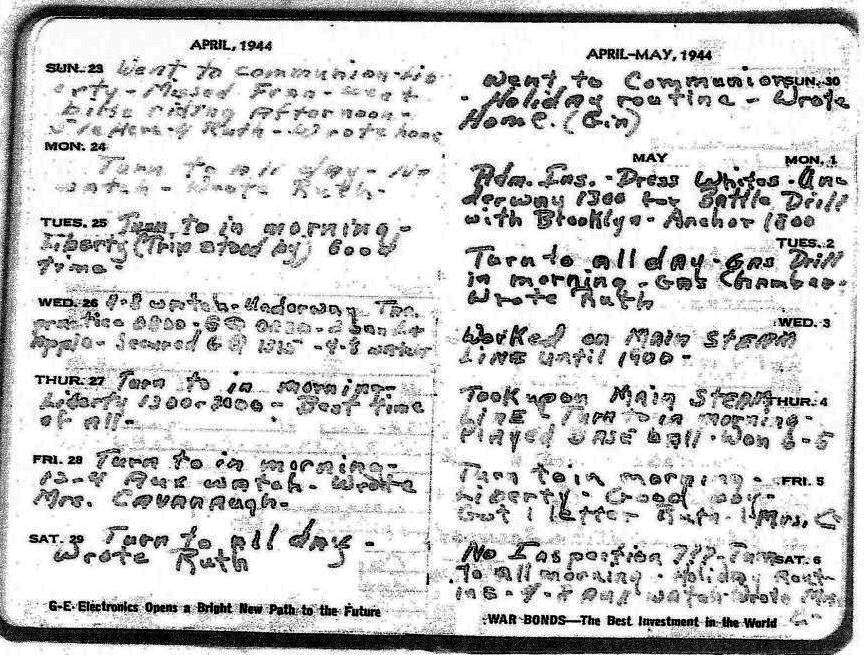 APRIL, 1944
SUN. 23 Went to communion - lib
erty - Missed Fran - went
bike riding afternoon -
Ruth - Wrote home
MON. 24
Turn to all day - No
watch - Wrote Ruth -
TUES. 25 Turn to in morning -
Liberty (Trip stood by) Good
time -
WED. 26 4-8 watch - Underway
practice 0800 -
Secured 4-8 watch
THUR. 27 Turn to in morning -
Liberty 1300 - Best time
of all -
FRI. 28 Turn to in morning -
12-4 Aux watch - Wrote
Mrs. Cavannaugh -
SAT. 29 Turn to all day -
Wrote Ruth
G-E Electronics Opens a Bright New Path to the Future
APRIL–MAY, 1944
Went to Communion SUN. 30
- Holiday routine - Wrote
Home. (Gin)
MAY MON. 1
Adm. Ins. - Dress Whites - Un
derway 1300 for Battle Drill
with Brooklyn - Anchor 1800
TUES. 2
Turn to all day - Gas Drill
in morning - Gas Chamber -
Wrote Ruth
WED. 3
Worked on Main STEAM
LINE until 1900 -
Took up on Main STEAM THUR. 4
LINE - Turn to in morning -
Played base ball - Won 6-5
Turn to in morning - FRI. 5
Liberty - Good
Got 1 letter Ruth - 1 Mrs. C
No Inspection ??? - Turn SAT. 6
To all morning - Holiday Rout-
ine - 4-8 Aux watch - Wrote Mrs
C -
WAR BONDS—The Best Investment in the World